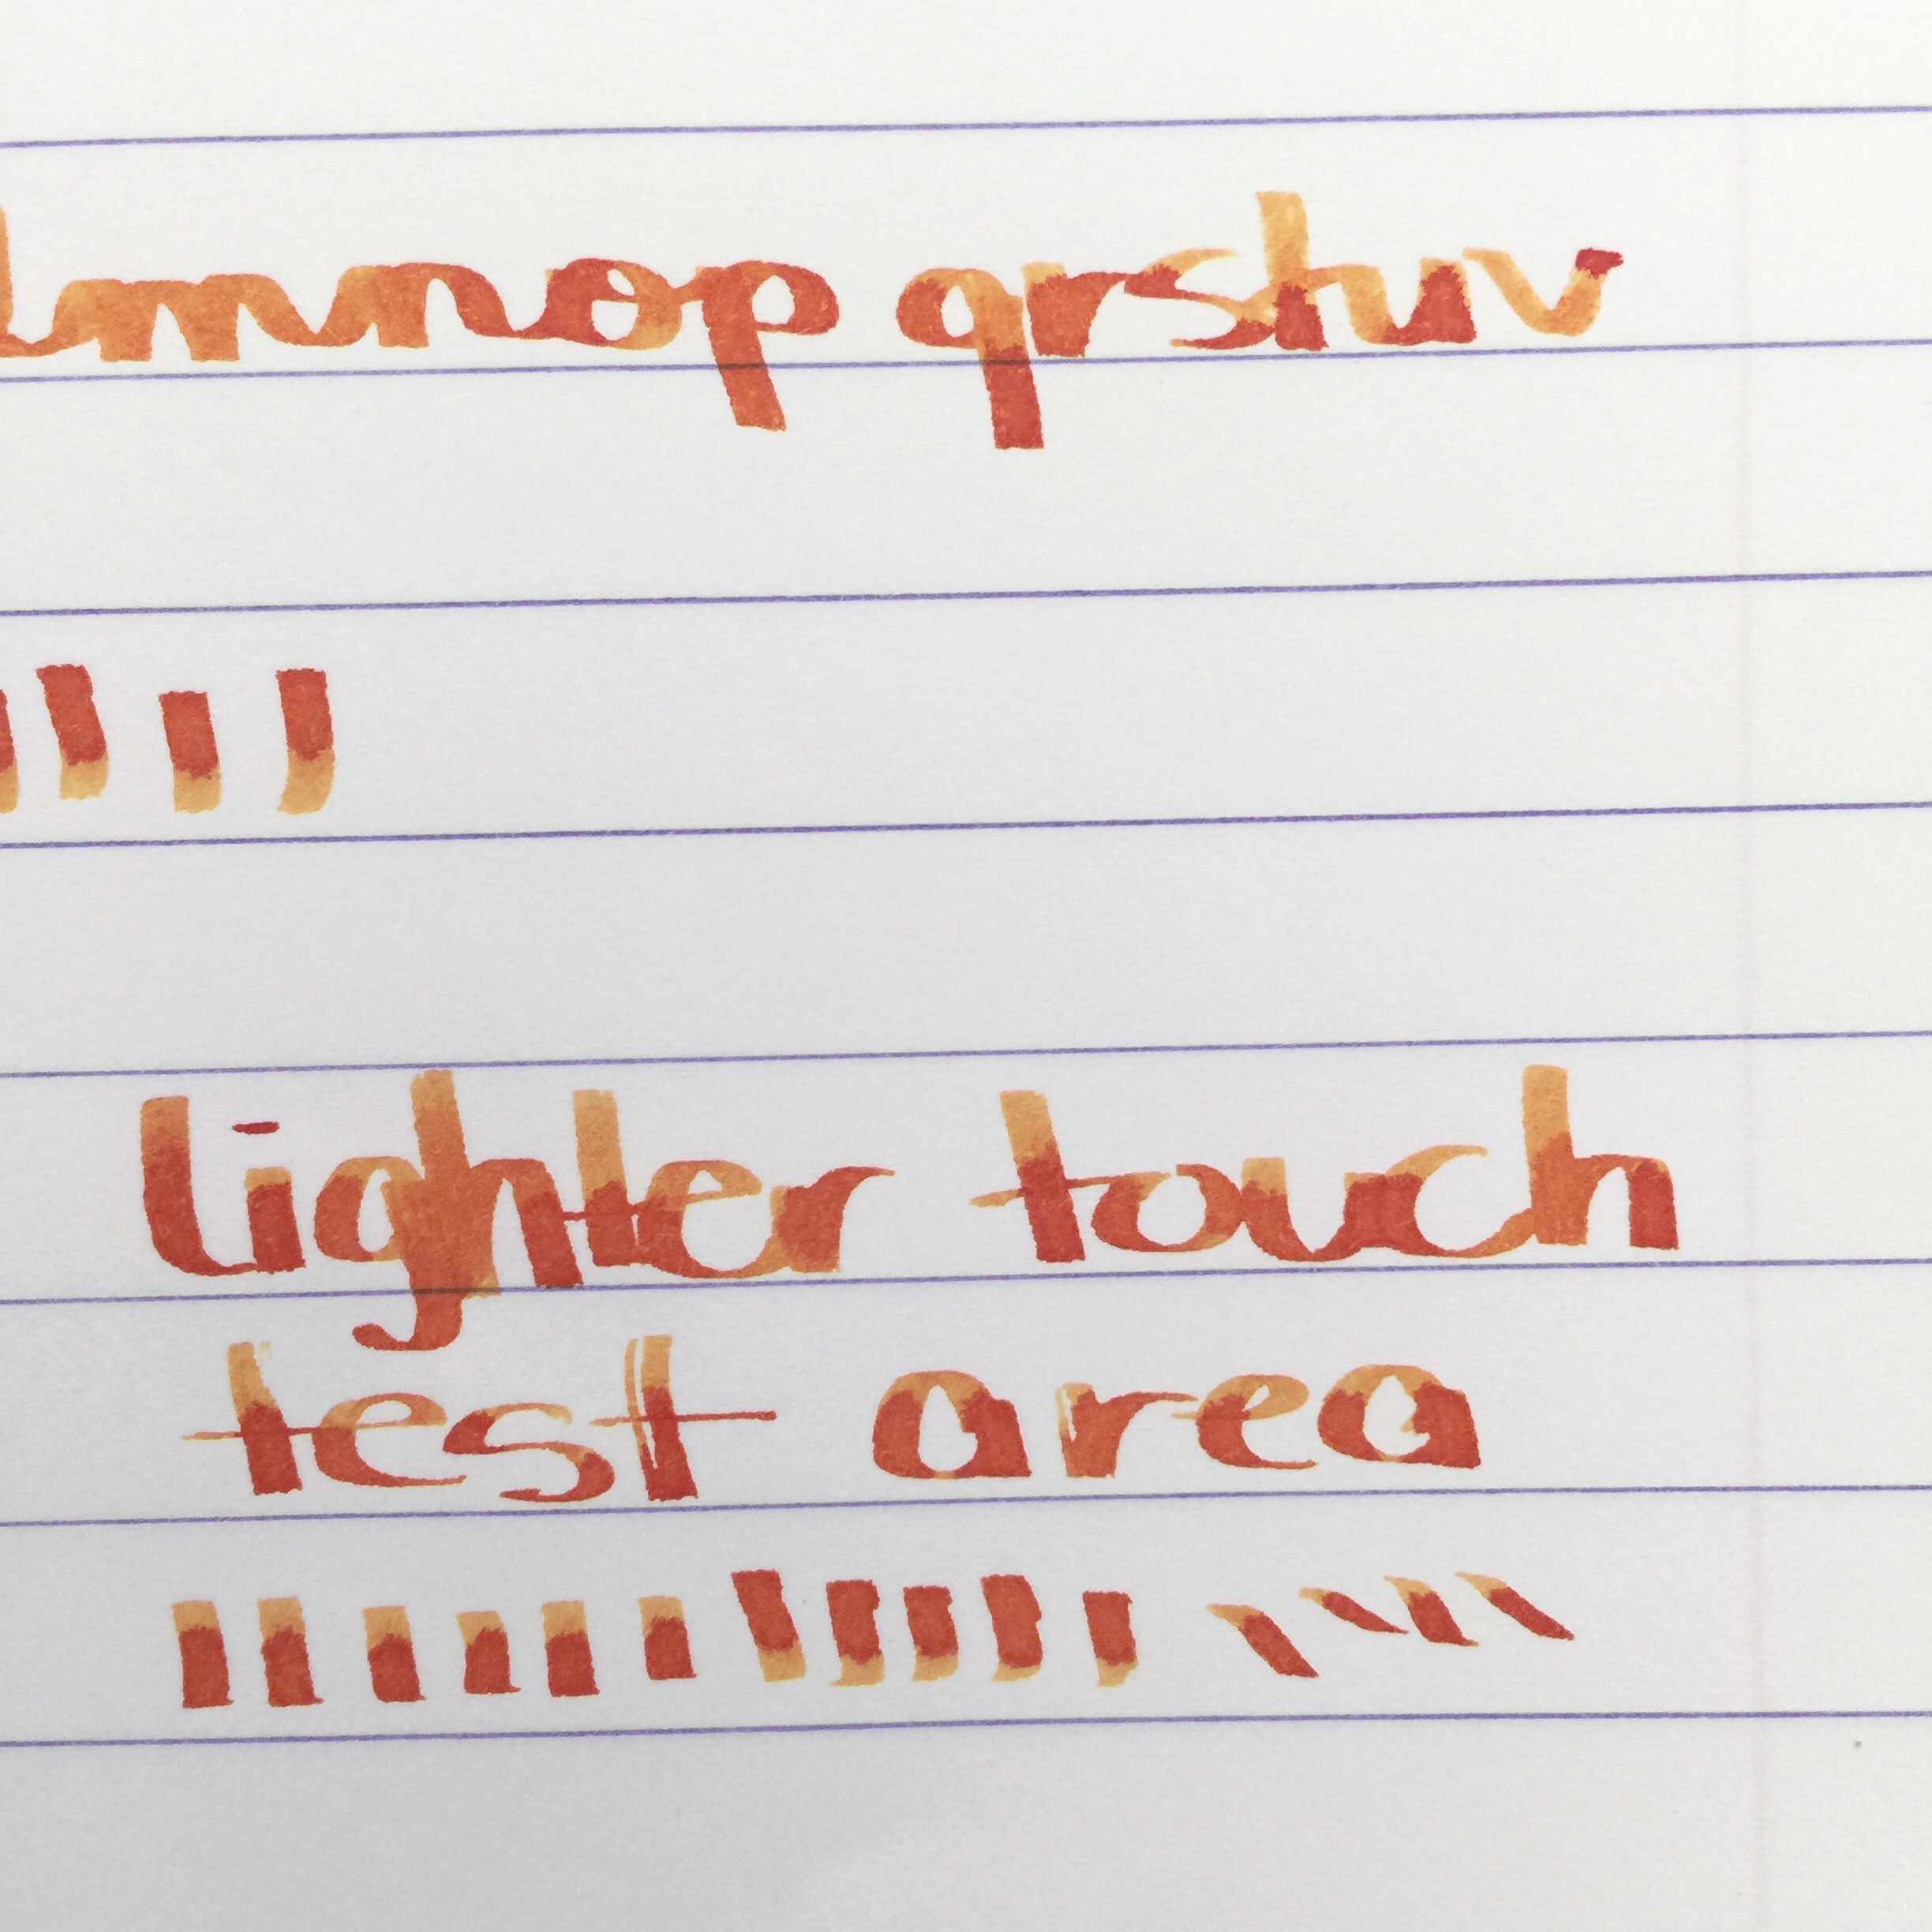 lmnop qrstuv
lighter touch
test area